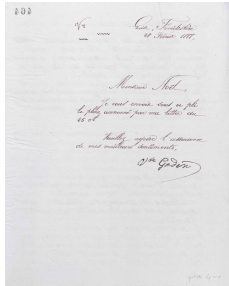 464
28 Février 1888.
Monsieur Noël
Je vous envoie sous ce pli
la photo
par votre lettre du
26 ct
Veuillez agréer l'assurance
de mes meilleurs sentiments,
Vve Godin